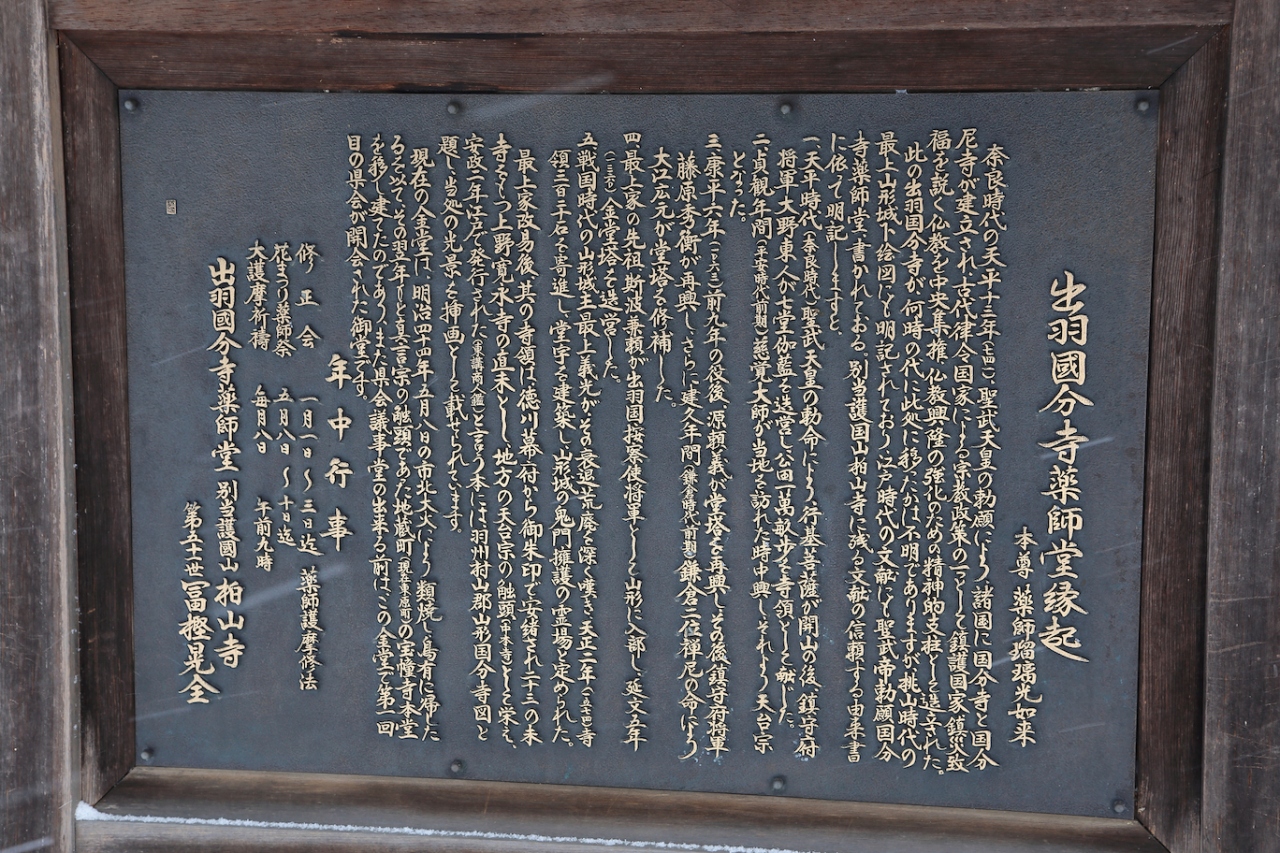 出羽國分寺薬師堂縁起
本尊 薬師瑠璃光如来
奈良時代の天平十三年(七四一)、聖武天皇の勅願により、諸国に国分寺と国分
尼寺が建立され古代律令国家による宗教政策の一つとして鎮護国家、鎮災致
福を説く仏教を中央集権、仏教興隆の強化のための精神的支柱として造立された。
此の出羽国分寺が何時の代に此処に移たかは不明でありますが、桃山時代の
最上山形城下絵図にも明記されており、江戸時代の文献にも聖武帝勅願国分
寺薬師堂、書かれておる。別当護国山柏山寺に残る文献の信頼する由来書
に依って明記しますと、
一、天平時代(奈良時代)聖武天皇の勅命により、行基菩薩が開山の後、鎮守府
将軍大野東人が七堂伽藍を造営し、公田一萬畝歩を寺領として献じた。
二、貞観年間(平安時代前期)慈覚大師が当地を訪れた時中興し、それより天台宗
となった。
三、康平六年(一〇六三)前九年の役後、源頼義が堂塔を再興し、その後、鎮守府将軍
藤原秀衡が再興し、さらに建久年間(鎌倉時代前期)鎌倉二位禅尼の命により、
大江広元が堂塔を修補した。
四、最上家の先祖斯波兼頼が出羽国按察使将軍として山形に入部し、延文五年
(一三六〇)金堂塔を造営した。
五、戦国時代の山形城主最上義光がその衰退荒廃を深く嘆き、天正二年(一五七四)寺
領三百二千石を寄進し、堂宇を建築し、山形城の鬼門擁護の霊場と定められた。
最上家改易後、其の寺領は徳川幕府から御朱印で安緒され二十三の末
寺をもつ上野寛永寺の直末とし、地方の天台宗の触頭(中本寺)として栄え、
安政二年江戸で発行された(東講商人鑑)と言う本には、羽州村山郡山形国分寺図と
題し、当処の光景を挿画として載せられています。
現在の金堂は、明治四十四年五月八日の市北大火により、類焼し烏有に帰した
るを以て、その翌年もと真言宗の触頭であった地蔵町(現在東原町)の宝幢寺本堂
を移し建てたのであり、また県会議事堂の出来る前は、この金堂で第一回
目の県会が開会された御堂です。
年中行事
修正会 一月一日〜三日迄 薬師護摩修法
花まつり薬師祭 五月八日〜十日迄
大護摩祈禱 毎月八日 午前九時
出羽國分寺薬師堂 別当護國山 柏山寺
第五十二世 冨樫晃全